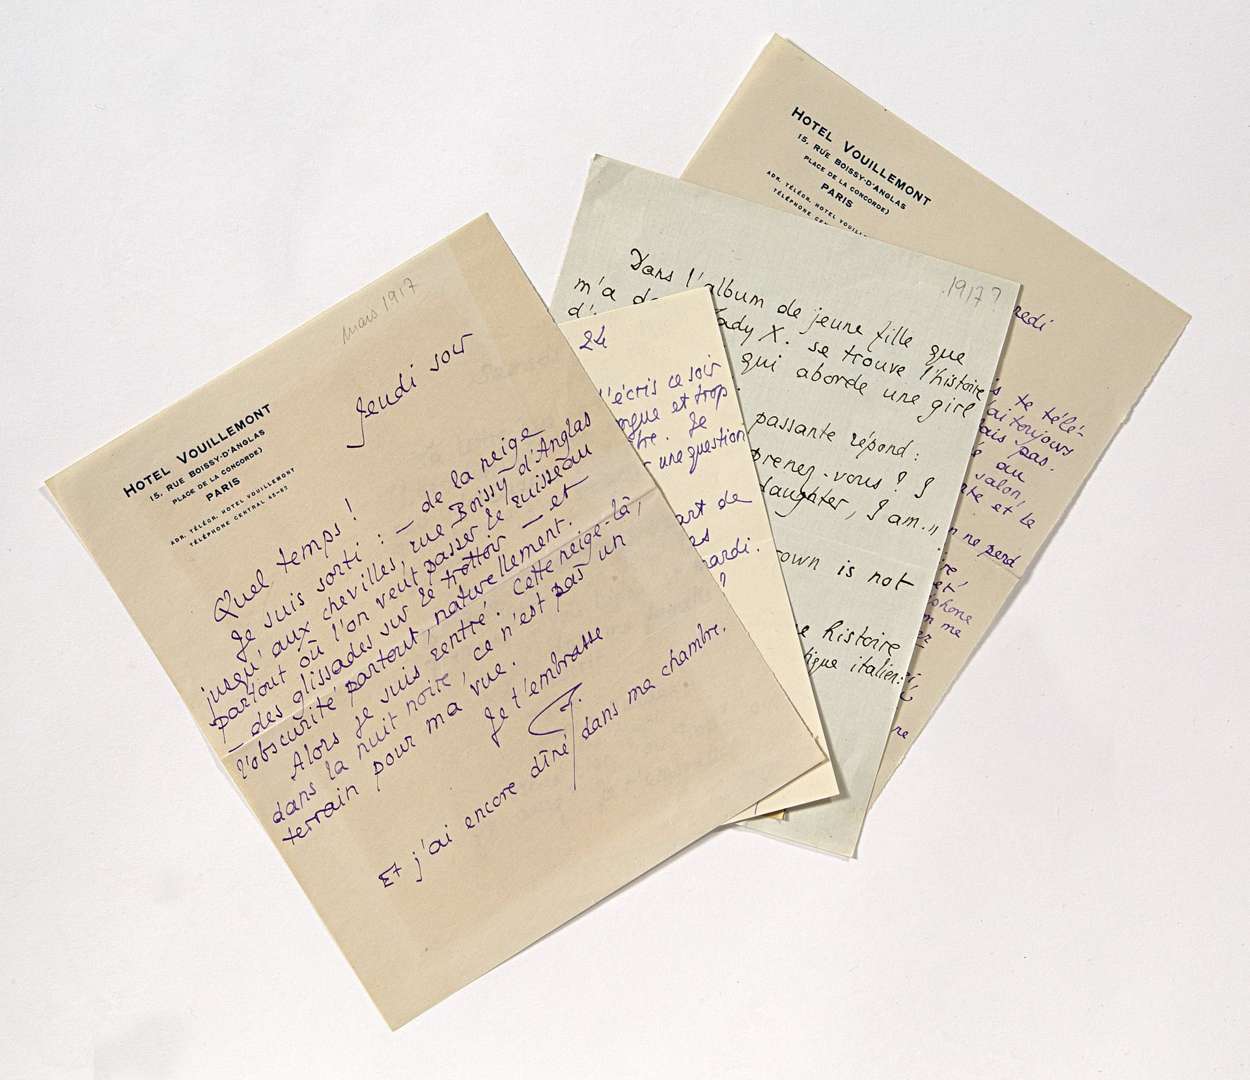 mars 1917
HOTEL VOUILLEMONT
15, RUE BOISSY-D'ANGLAS
PLACE DE LA CONCORDE)
PARIS
ADR. TÉLÉGR. HOTEL VOUILLEMONT
TÉLÉPHONE CENTRAL
Jeudi soir
Quel temps !
Je suis sorti : — de la neige
jusqu'aux chevilles, rue Boissy-d'Anglas
partout où l'on veut passer le ruisseau
— des glissades sur le trottoir — et
l'obscurité partout, naturellement.
Alors je suis rentré. Cette neige-là,
dans la nuit noire, ce n'est pas un
terrain pour ma vue.
Je t'embrasse
Et j'ai encore dîné dans ma chambre.
24
t'écris ce soir
et trop
Je
une question
art de
mardi.
?
1917?
Dans l'album de jeune fille que
m'a
lady X. se trouve l'histoire
d'
qui aborde une girl
passante répond :
prenez-vous ? I
daughter, I am."
is not
histoire
italien:
HOTEL VOUILLEMONT
15, RUE BOISSY-D'ANGLAS
PLACE DE LA CONCORDE)
PARIS
ADR. TÉLÉGR. HOTEL
TÉLÉPHONE
redi
te télé-
toujours
pas.
au
salon,
et le
ne perd
et
me